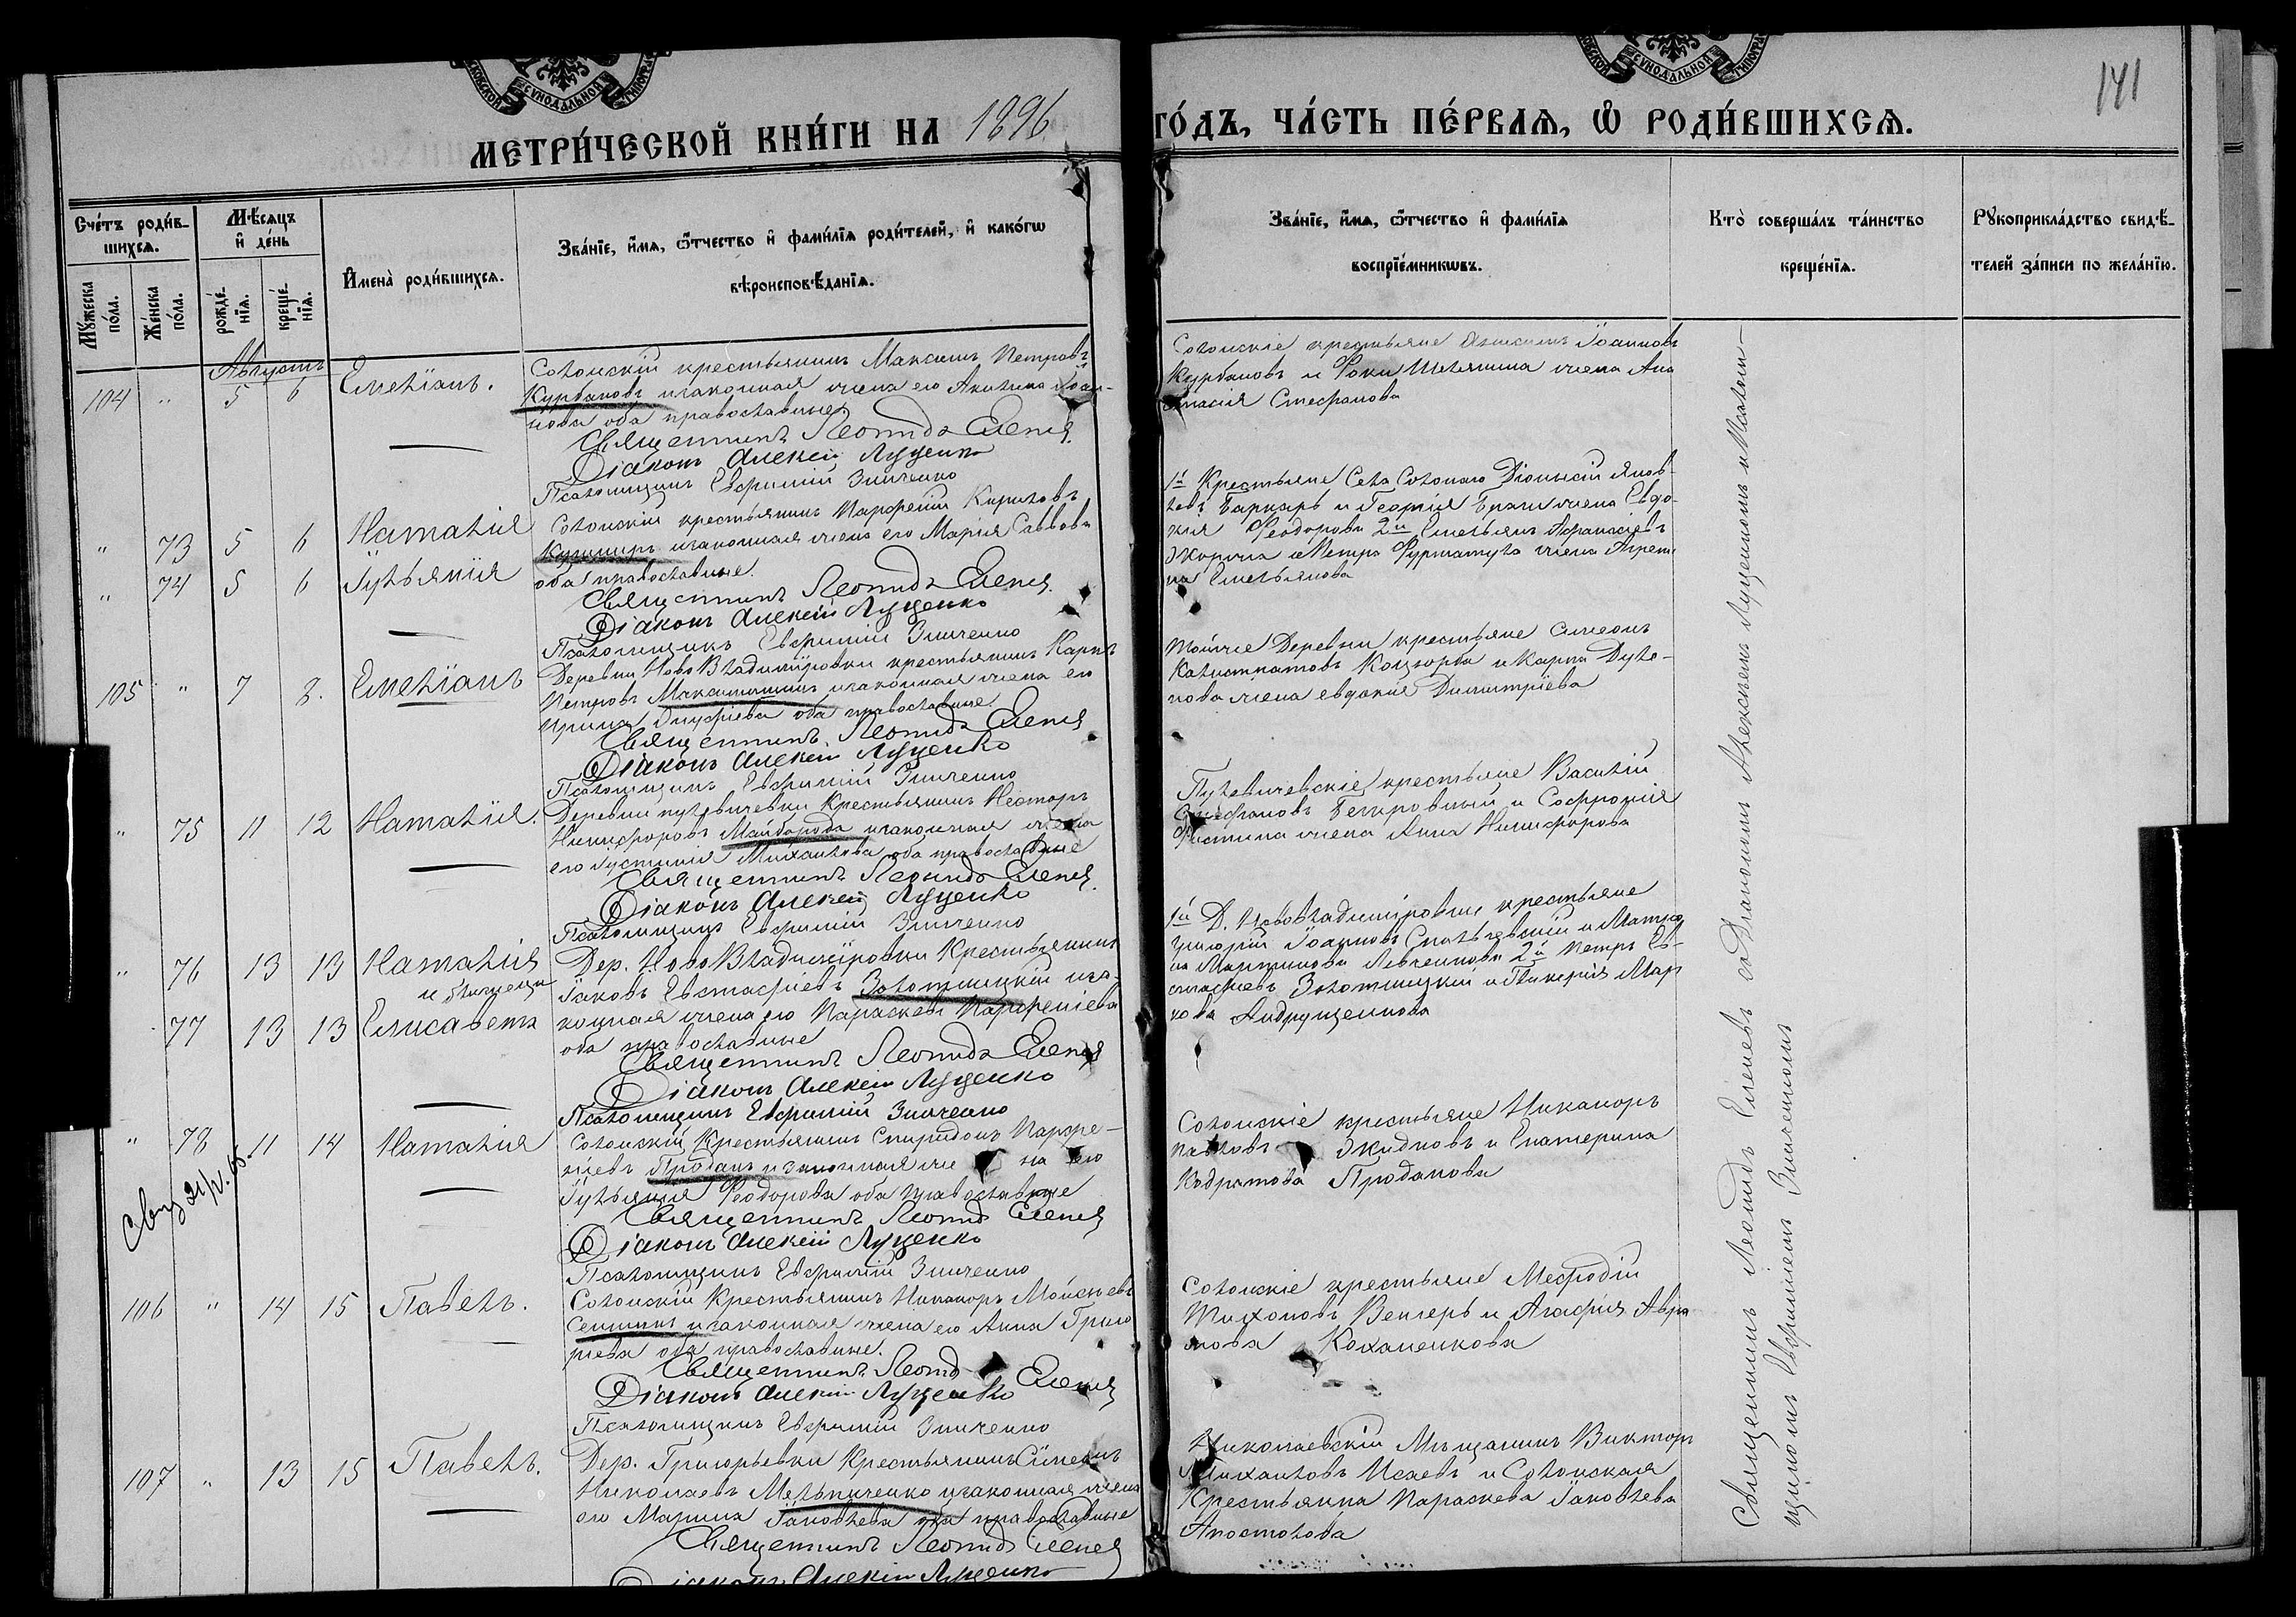 МЕТРИ́ЧЕСКОЙ КНИ́ГИ НА 1896
ГО́ДЪ, ЧА́СТЬ ПЕ́РВАЯ, Ѡ РОДИ́ВШИХСЯ.
141
Сче́тъ роди́в-
шихся.
Мꙋ́жеска по́ла.
Же́нска по́ла.
Мѣ́сяцъ
и҆ де́нь
рожде́-
нїя.
креще́-
нїя.
И҆мена̀ роди́вшихся.
Зва́нїе, и҆́мя, ѻ҆́тчество и҆ фами́лїя роди́телей, и҆ како́гѡ
вѣроисповѣ́данїя.
Зва́нїе, и҆́мя, ѻ҆́тчество и҆ фами́лїя
воспрїе́мникѡвъ.
Кто̀ соверша́лъ та́инство
креще́нїя.
Рꙋкоприкла́дство свидѣ́-
телей за́писи по жела́нїю.
Августъ
104 " 5 6 Емеліанъ.
Солонскій крестьянинъ Максимъ Петровъ
Курбановъ и законная жена его Акилина Іоан-
нова оба православные
Священникъ Леонидъ Еленев
Діаконъ Алексій Луценко
Псаломщикъ Евфимій Зинченко
Солонскіе крестьяне Іоанновъ
Курбановъ и Фоки жена Ана
стасія Стефанова
" 73 5 6 Наталія
" 74 5 6 Іуліянія
Солонскій крестьянинъ Парфеній Кириловъ
Кушниръ и законная жена его Марія Саввова
оба православные.
Священникъ Леонидъ Еленев
Діаконъ Алексій Луценко
Псаломщикъ Евфимій Зинченко
1й Крестьяне Села Солоного Діонисій Яков-
левъ и Георгія жена Евдо-
кія Феодорова 2й Емельянъ Афанасіевъ
и Петра жена Агрепи
на Емельянова
105 " 7 8. Емеліанъ
Деревни Ново Владиміровки крестьянинъ Карпъ
Петровъ и законная жена его
Ирина Онуфріева оба православные
Священникъ Леонидъ Еленев
Діаконъ Алексій Луценко
Псаломщикъ Евфимій Зинченко
Той же Деревни крестьяне Симеонъ
Калистратовъ Коцюрба и Карпа
жена Евдокія Димитріева
" 75 11 12 Наталія.
Деревни Крестьянинъ Несторъ
Никифоровъ Майборода и законная жена
его Іустинія Михаилова оба православные
Священникъ Леонидъ Еленев
Діаконъ Алексій Луценко
Псаломщикъ Евфимій Зинченко
крестьяне Василій
Стефановъ и Софронія
жена Анна Никифорова
" 76 13 13 Наталія
и близнецы
77 13 13 Елисаветъ
Дер. Ново Владиміровки Крестьянинъ
Іаковъ Евстафіевъ Золотницкій и за-
конная жена его Параскева Парфеніева
оба православные
Священникъ Леонидъ Еленев
Діаконъ Алексій Луценко
Псаломщикъ Евфимій Зинченко
1й Д. Нововладиміровки крестьяне
Григорій Іоанновъ и Матро
на Мартинова Левченкова 2й Петръ Ев-
стафіевъ Золотницкій и Гликерія Мар
кова Андрущенкова
" 78 11 14 Наталія
Солонскій Крестьянинъ Спиридонъ Парфе-
ніевъ Проданъ и законная жена его
Іуліянія Феодорова оба православные
Священникъ Леонидъ Еленев
Діаконъ Алексій Луценко
Псаломщикъ Евфимій Зинченко
Солонскіе крестьяне Никаноръ
Павловъ и Екатерина
Кодратова Проданова
106 " 14 15 Павелъ.
Солонскій Крестьянинъ Никаноръ Моисѣевъ
Сенинъ и законная жена его Анна Григо
рьева оба православные.
Священникъ Леонидъ Еленев
Діаконъ Алексій Луценко
Псаломщикъ Евфимій Зинченко
Солонскіе крестьяне Мефодій
Тихоновъ Венгеръ и Агафія Авра
мова Коханенкова
107 " 13 15 Павелъ.
Дер. Григорьевки Крестьянинъ Сімеонъ
Николаевъ Мельниченко и законная жена
его Марина Іаковлева оба православные
Священникъ Леонидъ Еленев
Діаконъ Алексій Луценко
Николаевскій Мѣщанинъ Викторъ
Михаиловъ Исаевъ и Солонская
Крестьянка Параскева Іаковлева
Апостолова
Священникъ Леонидъ Еленевъ съ Діакономъ Алексѣемъ Луценкомъ и Псалом-
щикомъ Евфиміемъ Зинченкомъ